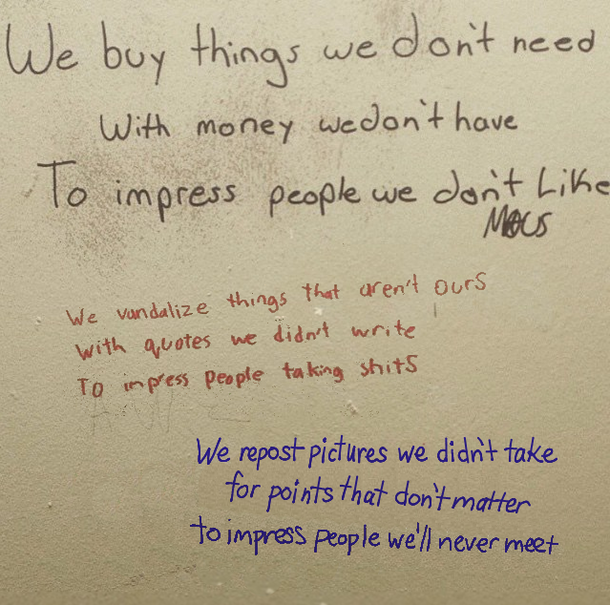 We buy things we don't need
With money we don't have
To impress people we don't Like
We vandalize things that aren't ours
with quotes we didn't write
To impress people taking shits
We repost pictures we didn't take
for points that don't matter
to impress people we'll never meet